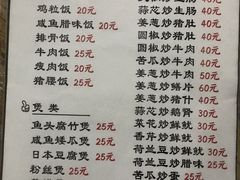 鸡粒饭 20元
咸鱼腊味饭 20元
排骨饭 20元
牛肉饭 25元
瘦肉饭 20元
猪腰饭 25元
煲类
鱼头腐竹煲 25元
咸鱼矮瓜煲 25元
日本豆腐煲 25元
粉丝煲 25元
蒜芯炒生肠 40元
姜葱炒猪肚 40元
圆椒炒猪肚 40元
圆椒炒牛肉 50元
苦瓜炒牛肉 50元
姜葱炒鱔片 60元
姜葱炒什 60元
蒜芯炒鹅肾 30元
菜花炒鲜鱿 30元
香芹炒鲜鱿 30元
荷兰豆炒鲜鱿 30元
荷兰豆炒腊味 25元
苦瓜炒蛋 25元